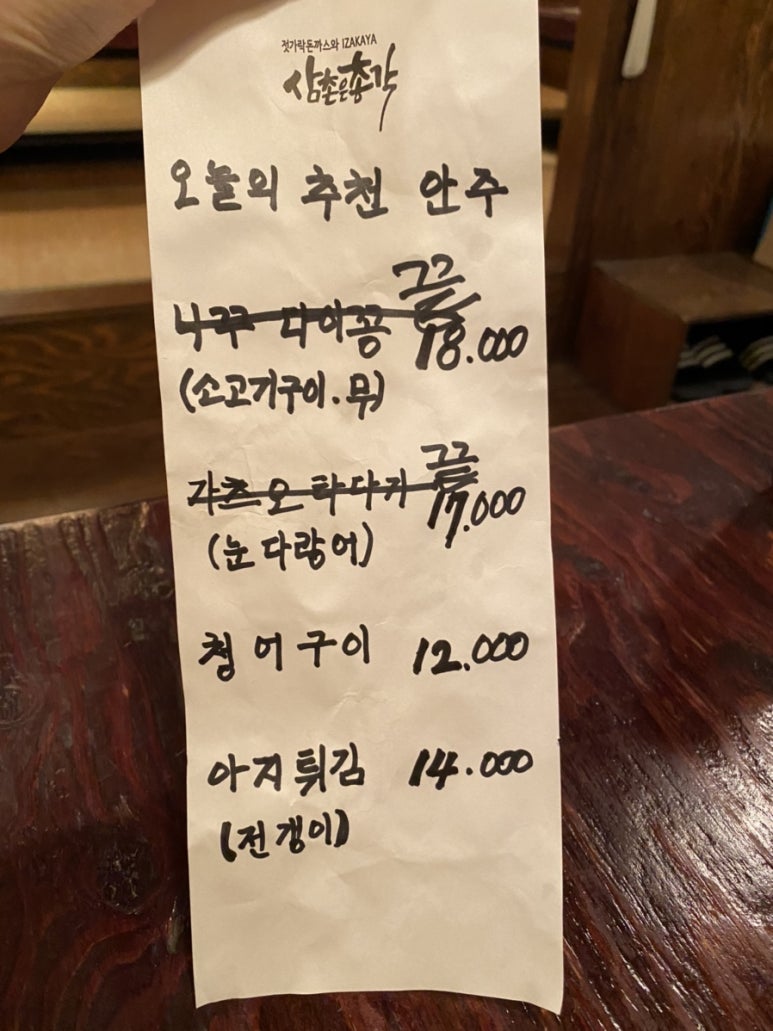 젓가락돈까스와 IZAKAYA
삼촌은총각
오늘의 추천 안주
니꾸 다이꽁 18.000
(소고기구이.무)
가츠오 타다키 17.000
(눈다랑어)
청어구이 12.000
아지튀김 14.000
(전갱이)